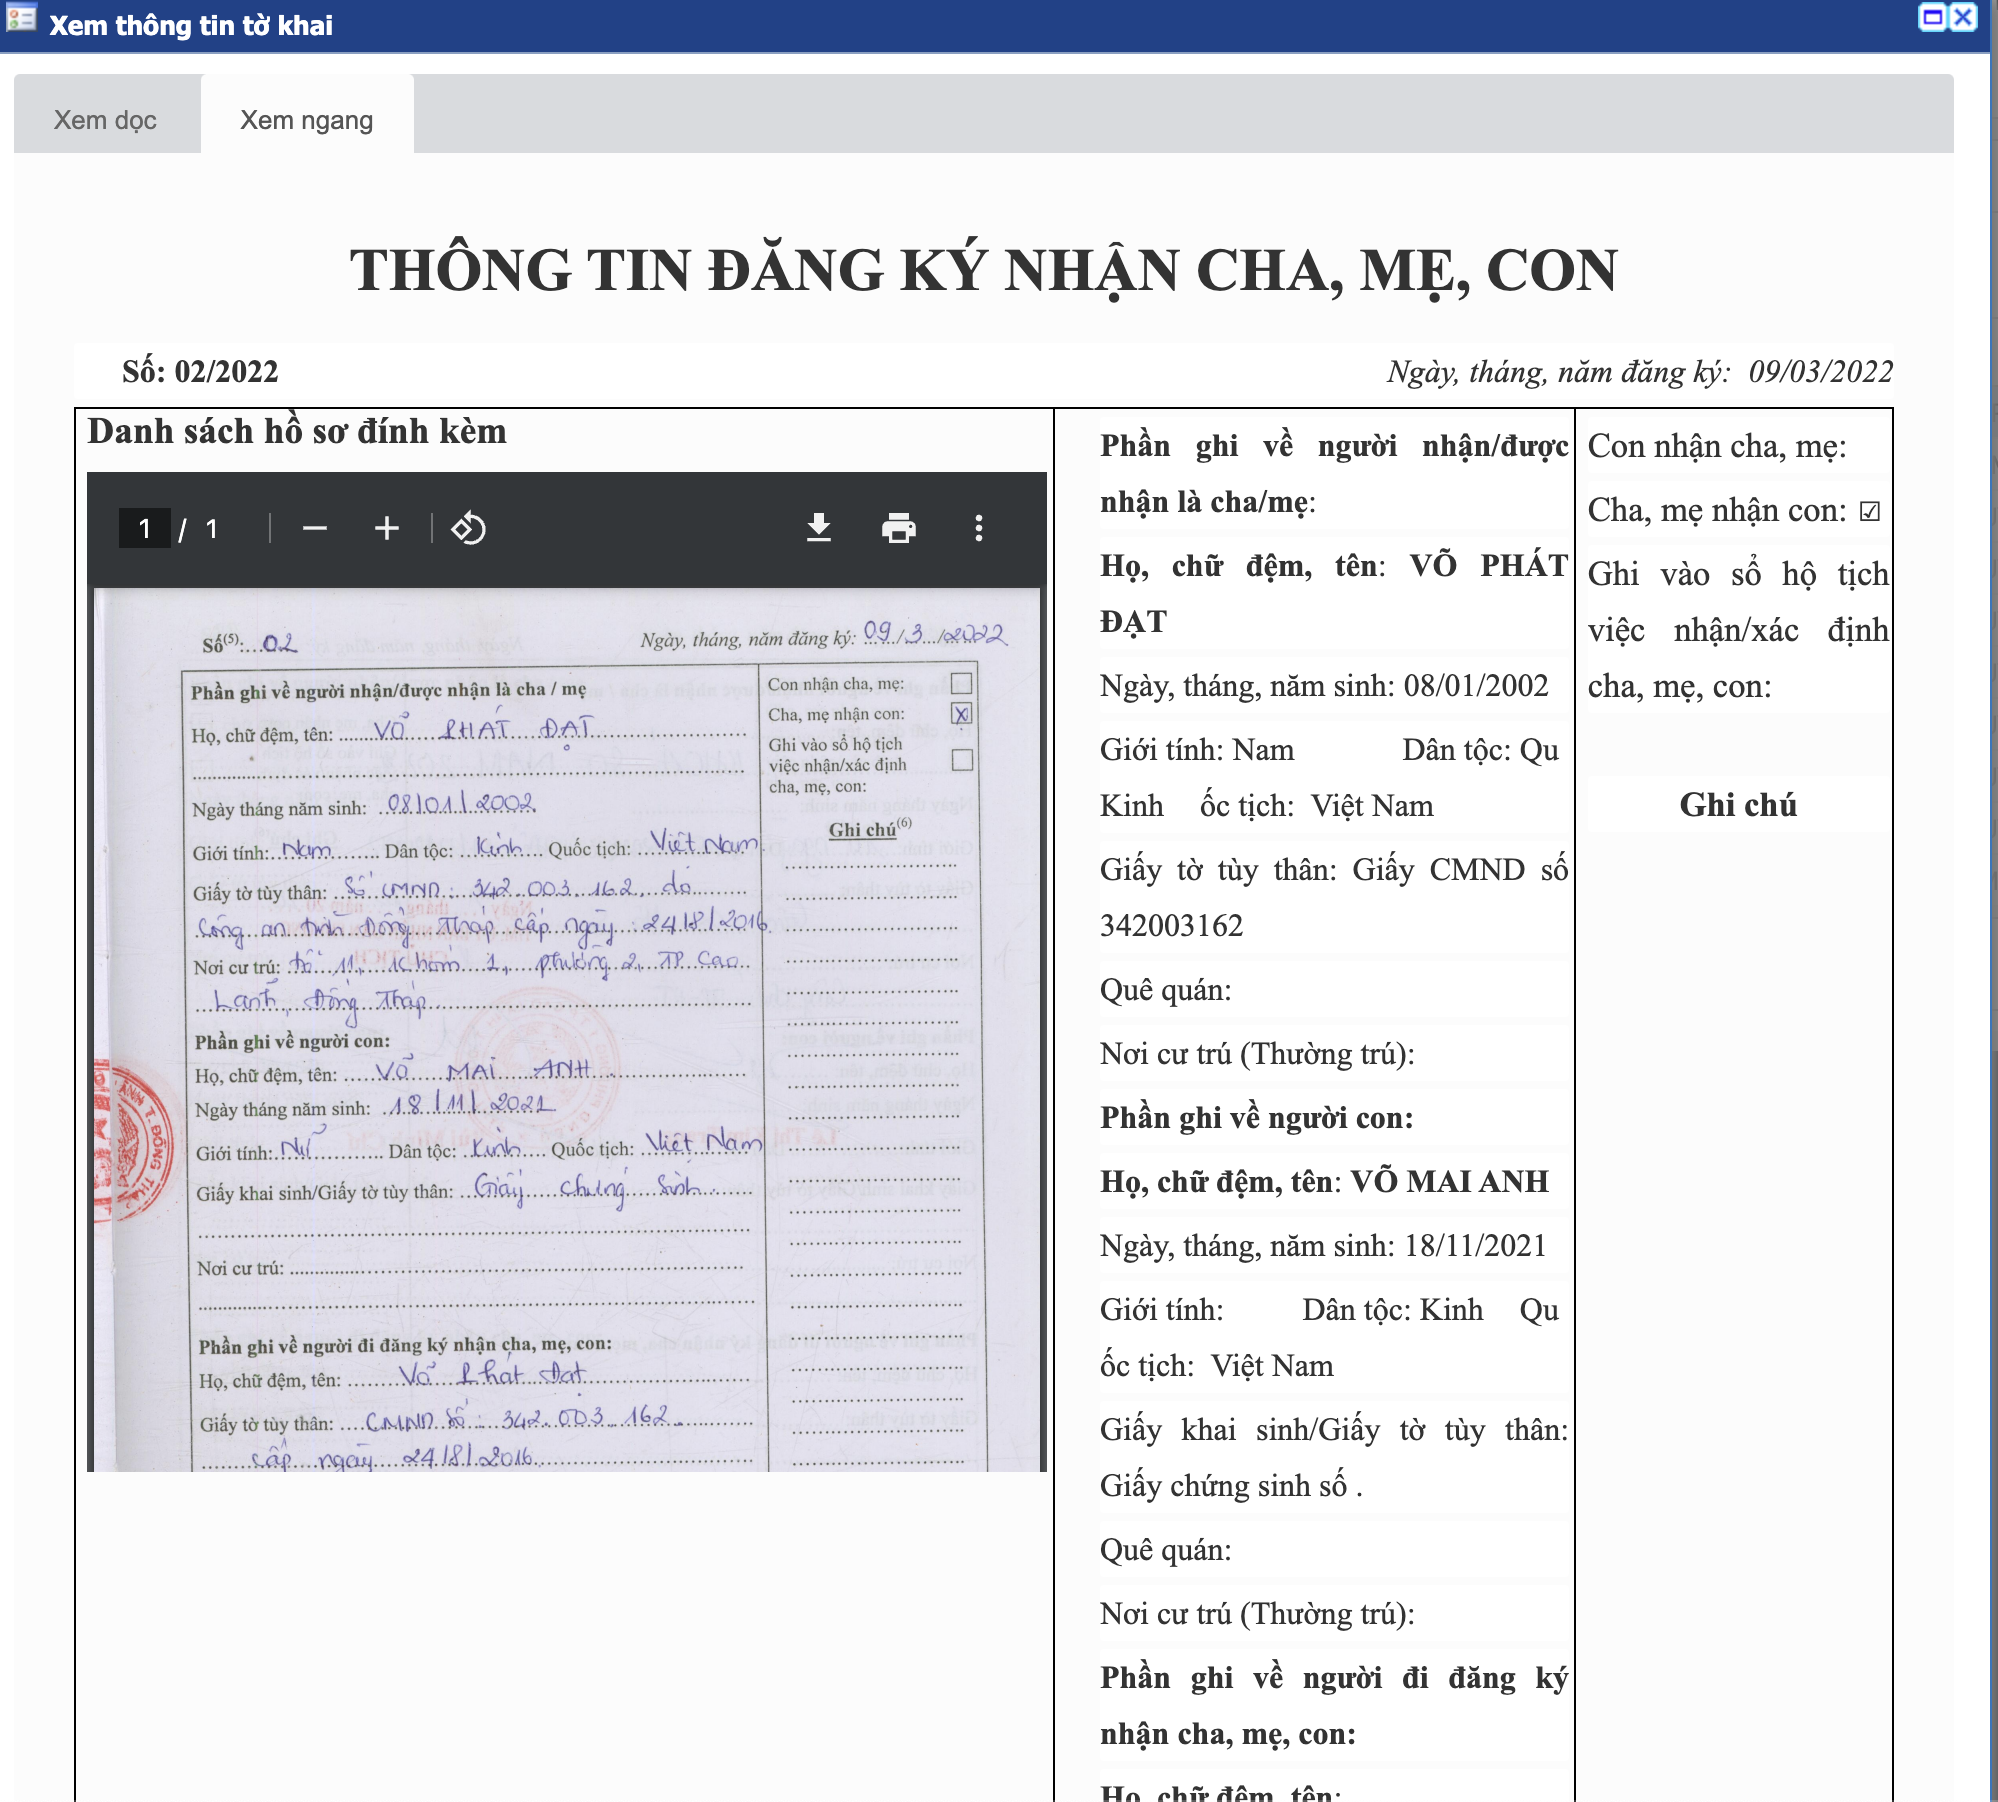 Xem thông tin tờ khai
Xem dọc
Xem ngang
THÔNG TIN ĐĂNG KÝ NHẬN CHA, MẸ, CON
Số: 02/2022
Ngày, tháng, năm đăng ký: 09/03/2022
Danh sách hồ sơ đính kèm
1 / 1
Số(5):...02
Ngày, tháng, năm đăng ký: 09/3/2022
Phần ghi về người nhận/được nhận là cha / mẹ
Họ, chữ đệm, tên: VÕ PHÁT ĐẠT
Ngày tháng năm sinh: 08/01/2002
Giới tính: Nam Dân tộc: Kinh Quốc tịch: Việt Nam
Giấy tờ tùy thân: Số CMND: 342.003.162, do
Công an tỉnh Đồng Tháp cấp ngày: 24/8/2016
Nơi cư trú: tổ 11, khóm 1, phường 2, TP Cao
Lãnh, Đồng Tháp
Phần ghi về người con:
Họ, chữ đệm, tên: VÕ MAI ANH
Ngày tháng năm sinh: 18/11/2021
Giới tính: Nữ Dân tộc: Kinh Quốc tịch: Việt Nam
Giấy khai sinh/Giấy tờ tùy thân: Giấy chứng sinh
Nơi cư trú:
Phần ghi về người đi đăng ký nhận cha, mẹ, con:
Họ, chữ đệm, tên: Võ Phát Đạt
Giấy tờ tùy thân: CMND số: 342.003.162.
cấp ngày 24/8/2016
Con nhận cha, mẹ:
Cha, mẹ nhận con: X
Ghi vào sổ hộ tịch
việc nhận/xác định
cha, mẹ, con:
Ghi chú(6)
Phần ghi về người nhận/được
nhận là cha/mẹ:
Họ, chữ đệm, tên: VÕ PHÁT
ĐẠT
Ngày, tháng, năm sinh: 08/01/2002
Giới tính: Nam Dân tộc: Qu
Kinh ốc tịch: Việt Nam
Giấy tờ tùy thân: Giấy CMND số
342003162
Quê quán:
Nơi cư trú (Thường trú):
Phần ghi về người con:
Họ, chữ đệm, tên: VÕ MAI ANH
Ngày, tháng, năm sinh: 18/11/2021
Giới tính: Dân tộc: Kinh Qu
ốc tịch: Việt Nam
Giấy khai sinh/Giấy tờ tùy thân:
Giấy chứng sinh số .
Quê quán:
Nơi cư trú (Thường trú):
Phần ghi về người đi đăng ký
nhận cha, mẹ, con:
Họ, chữ đệm, tên:
Con nhận cha, mẹ:
Cha, mẹ nhận con: ☑
Ghi vào sổ hộ tịch
việc nhận/xác định
cha, mẹ, con:
Ghi chú